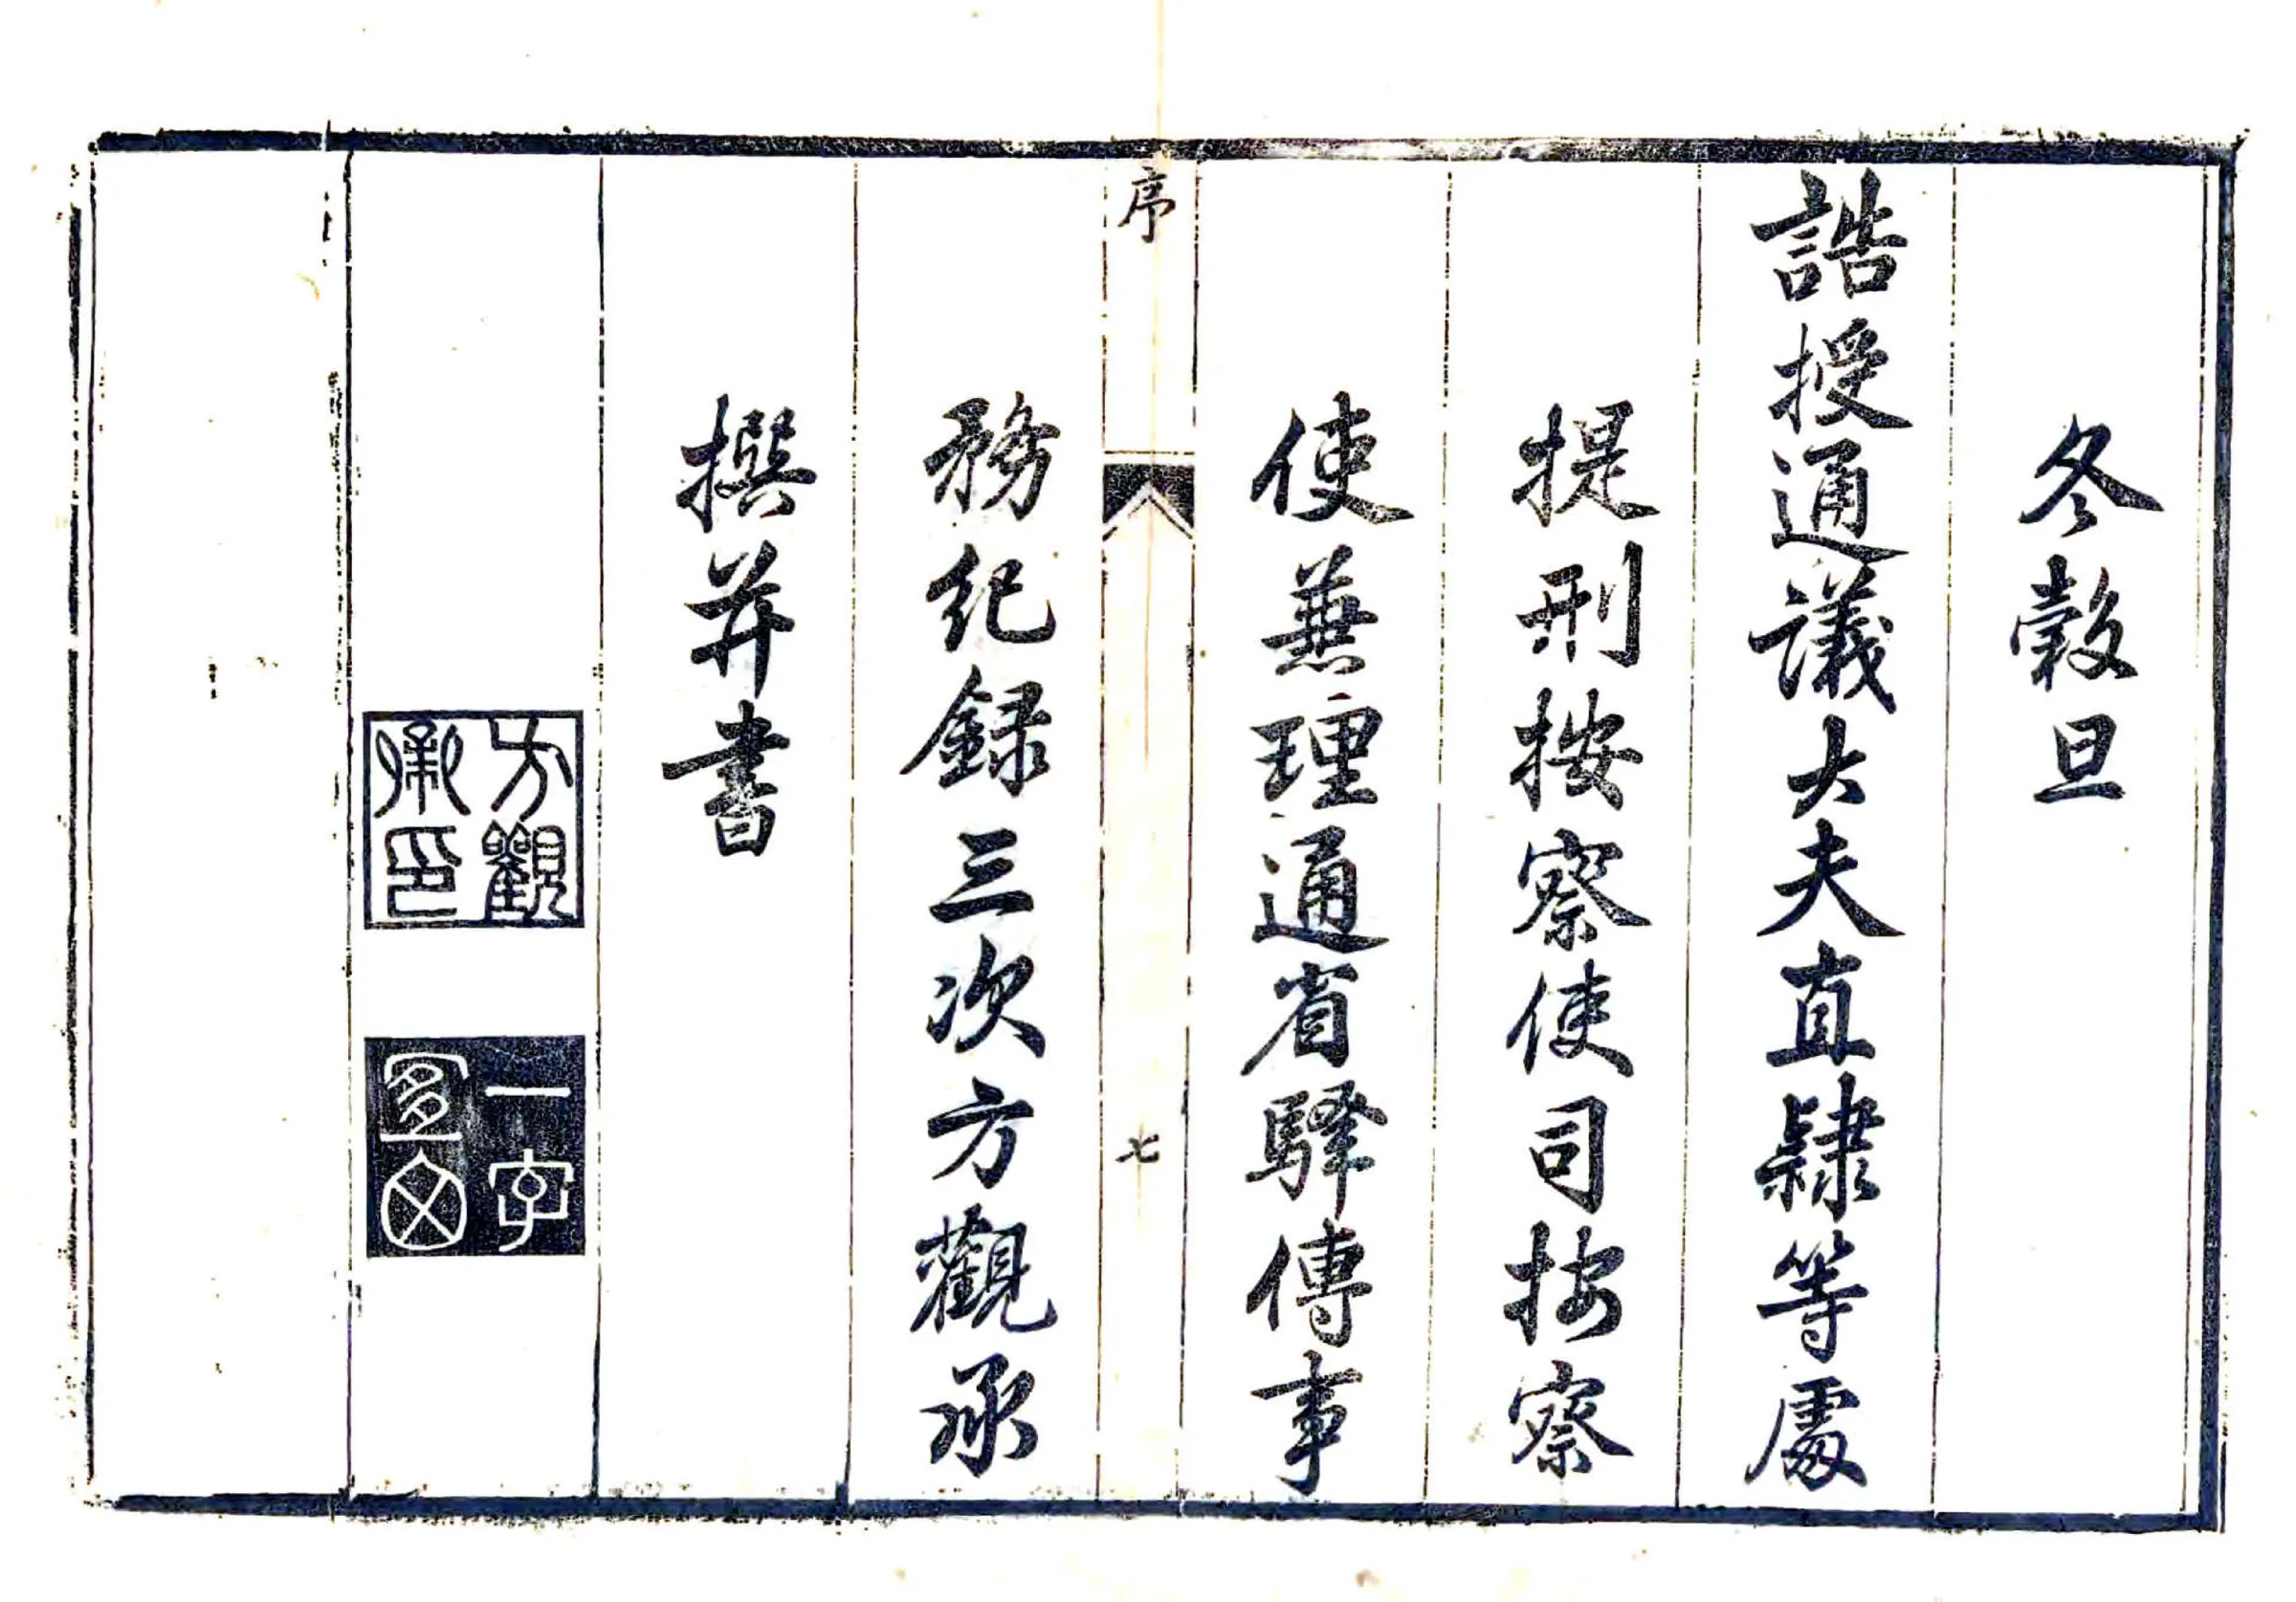 冬穀旦
誥授通議大夫直隸等處
提刑按察使司按察
使兼理通省驛傳事
序
七
務紀録三次方觀承
撰并書
方觀承印
一字宜田